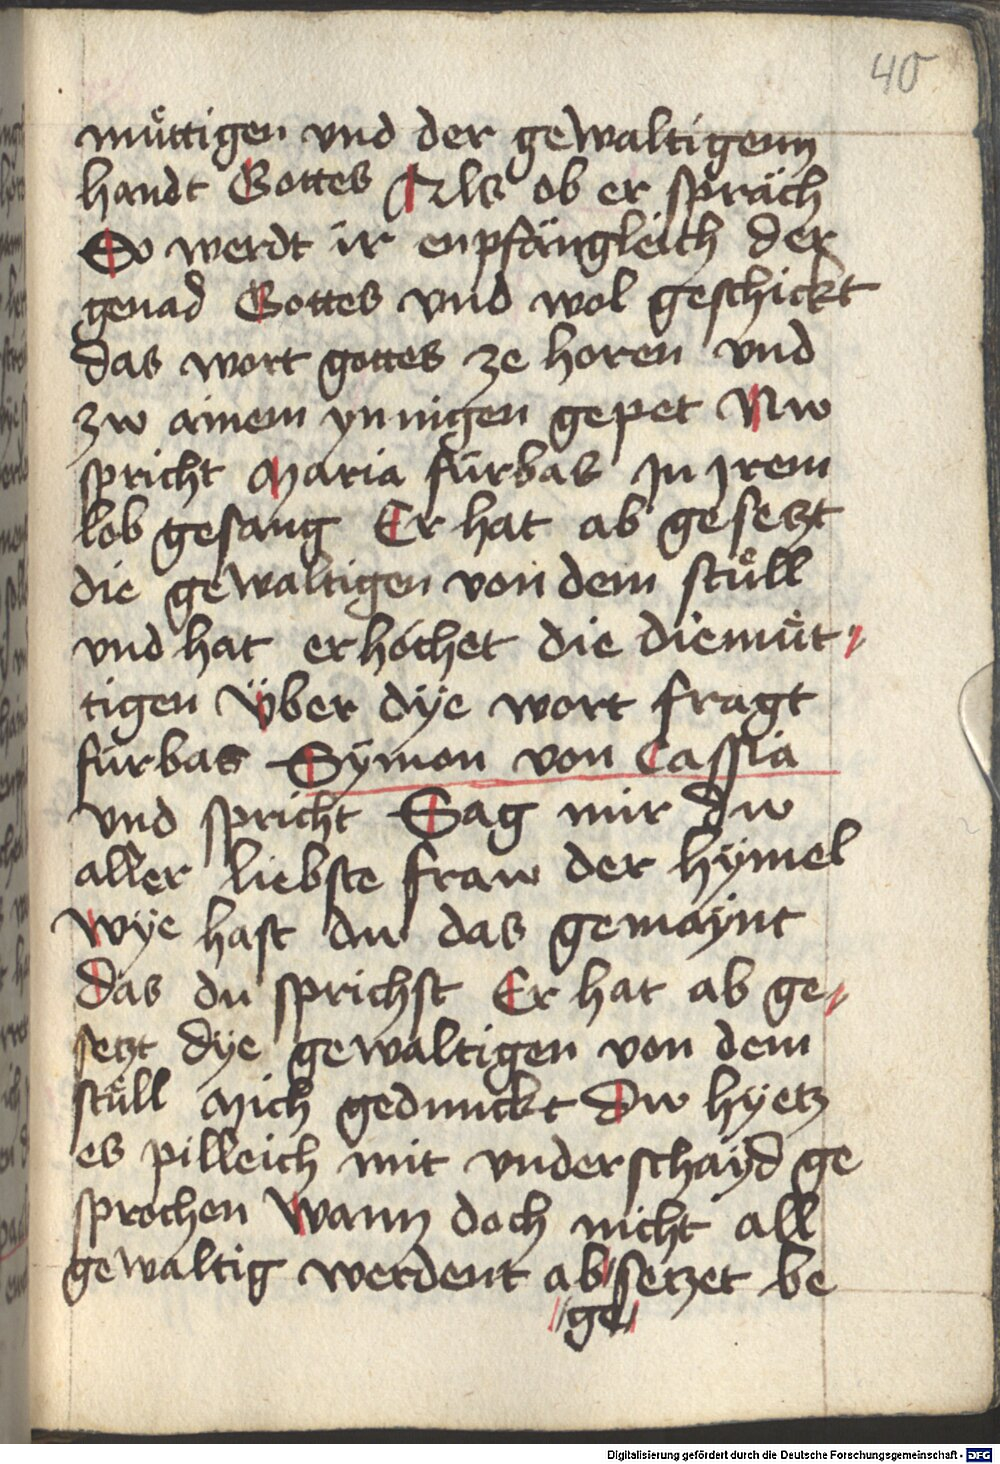 40
muͤttigen vnd der gewaltigenn
handt Gottes Als ob er spräch
So werdt ir enpfängleich der
genad Gottes vnd wol geschickt
das wort gottes ze horen vnd
zw ainem ynnigen gepet Nw
spricht Maria fürbas In Irem
lob gesang Er hat ab gesetzt
die gewaltigen von dem stuͤll
vnd hat erhöchet die diemuͤt〃
tigen Über dÿe wort fragt
fürbas Sÿmon von Cassia
vnd spricht Sag mir dw
aller liebste fraw der hÿmel
wÿe hast du das gemaÿnt
das du sprichst Er hat ab ge〃
setzt dÿe gewaltigen von dem
stuͤll Mich gedunckt dw hÿetz
es pilleich mit vnderschaÿd ge
sprochen Wann doch nicht all
gewaltig werdent ab setzet be
〃ge〃
Digitalisierung gefördert durch die Deutsche Forschungsgemeinschaft - DFG